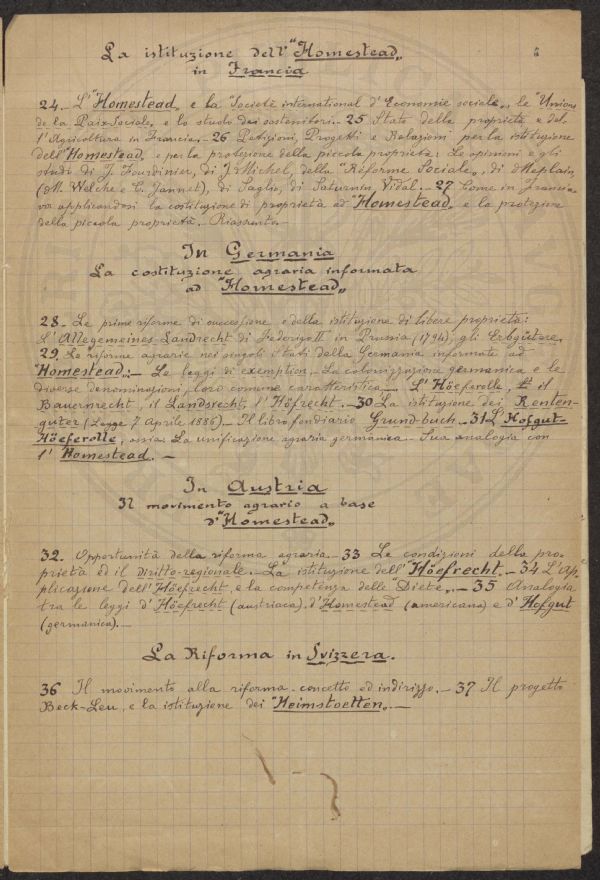 5
La istituzione dell' "Homestead„
in Francia
24.- L' "Homestead„ e la "Societé international d'Economie sociale„, le "Unions
de la Paix Sociale„ e lo studo dei sostenitori.- 25 Stato della proprietà e del-
l'Agricoltura in Francia.- 26 Petizioni, Progetti e Relazioni per la istituzione
dell' "Homestead„ e per la protezione della piccola proprietà: Le opinioni e gli
studi di J. Fourdinier, di J. Michel, della "Réforme Sociale„, di
(M. Welche e C. Jannet), di Saglio, di Saturnin Vidal.- 27 Come in Francia
va applicandosi la costituzione di proprietà ad "Homestead„ e la protezione
della piccola proprietà.- Riassunto.-
In Germania
La costituzione agraria informata
ad "Homestead„
28.- Le prime riforme di successione e della istituzione di libere proprietà:
L'Allegemeines Landrecht di in Prussia (1794), gli Erbgütere.
29. Le riforme agrarie nei singoli Stati della Germania informate ad
"Homestead„.- Le leggi di exemption.- La colonizzazione germanica e le
diverse denominazioni, loro comune caratteristica.- L' Höeferolle, il
Bauernrecht, il Landsrecht, l'Höfrecht.- 30 La istituzione dei Renten-
guter (Legge 7 Aprile 1886).- Il libro fondiario Grund-buch.- 31 L'Hofgut-
Höeferolle, ossia La unificazione agraria germanica.- Sua analogia con
l' Homestead.-
In Austria
Il movimento agrario a base
d' "Homestead„
32. Opportunità della riforma agraria.- 33 Le condizioni della pro-
prietà ed il diritto-regionale.- La istituzione dell' Höefrecht.- 34 L'Ap-
plicazione dell' Höefrecht, e la competenza delle "Diete„.- 35 Analogia
tra le leggi d' Höefrecht (austriaca), d'Homestead (americana) e d' Hofgut
(germanica).-
La Riforma in Svizzera.
36 Il movimento alla riforma - concetto ed indirizzo.- 37 Il progetto
Beck-Leu, e la istituzione dei "Heimstoetten„.-